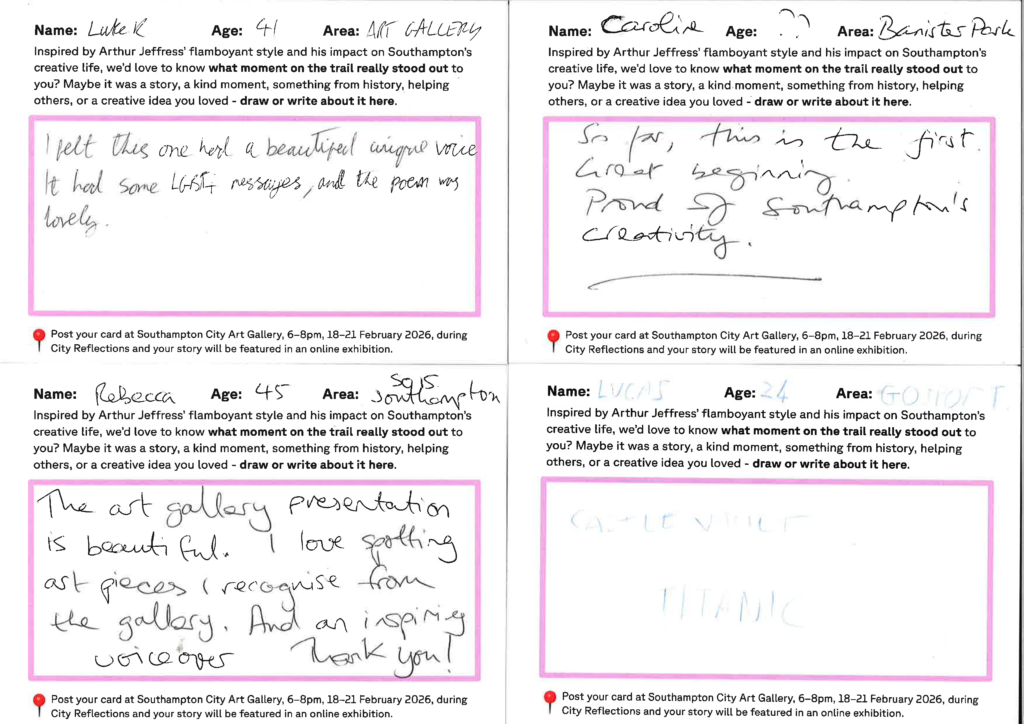 Name: Luke R Age: 41 Area: ART GALLERY
Inspired by Arthur Jeffress' flamboyant style and his impact on Southampton's
creative life, we'd love to know what moment on the trail really stood out to
you? Maybe it was a story, a kind moment, something from history, helping
others, or a creative idea you loved - draw or write about it here.
I felt this one had a beautiful unique voice
It had some LGBT+ messages, and the poem was
lovely.
Post your card at Southampton City Art Gallery, 6–8pm, 18–21 February 2026, during
City Reflections and your story will be featured in an online exhibition.
Name: Caroline Age: ?? Area: Banister Park
Inspired by Arthur Jeffress' flamboyant style and his impact on Southampton's
creative life, we'd love to know what moment on the trail really stood out to
you? Maybe it was a story, a kind moment, something from history, helping
others, or a creative idea you loved - draw or write about it here.
So far, this is the first.
Great beginning.
Proud of Southampton's
creativity.
Post your card at Southampton City Art Gallery, 6–8pm, 18–21 February 2026, during
City Reflections and your story will be featured in an online exhibition.
Name: Rebecca Age: 45 Area: SO15 Southampton
Inspired by Arthur Jeffress' flamboyant style and his impact on Southampton's
creative life, we'd love to know what moment on the trail really stood out to
you? Maybe it was a story, a kind moment, something from history, helping
others, or a creative idea you loved - draw or write about it here.
The art gallery presentation
is beautiful. I love spotting
art pieces I recognise from
the gallery. And an inspiring
voiceover Thank you!
Post your card at Southampton City Art Gallery, 6–8pm, 18–21 February 2026, during
City Reflections and your story will be featured in an online exhibition.
Name: LUCAS Age: 24 Area:
Inspired by Arthur Jeffress' flamboyant style and his impact on Southampton's
creative life, we'd love to know what moment on the trail really stood out to
you? Maybe it was a story, a kind moment, something from history, helping
others, or a creative idea you loved - draw or write about it here.
CASTLE VAULT
TITANIC
Post your card at Southampton City Art Gallery, 6–8pm, 18–21 February 2026, during
City Reflections and your story will be featured in an online exhibition.